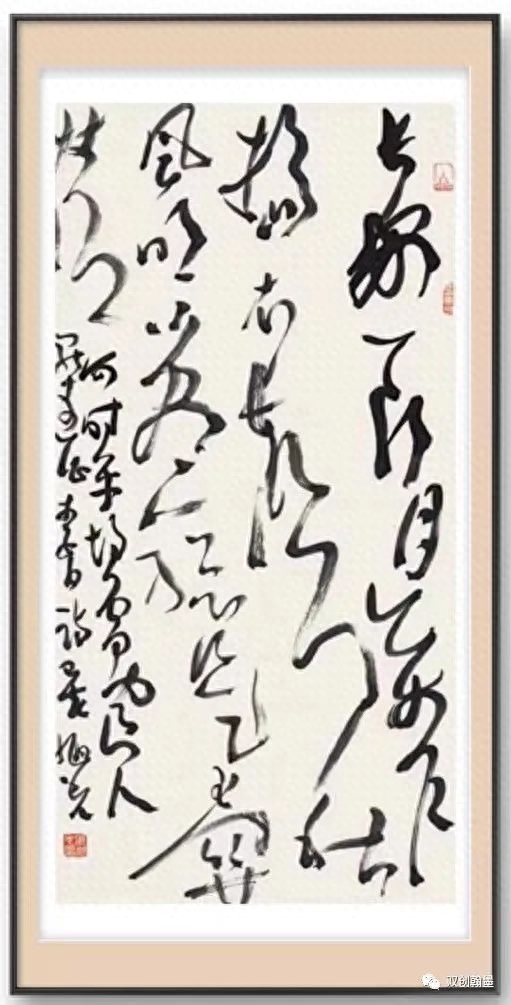 长安一片月万户
捣衣声秋
风吹不尽总是玉关
情
何时平胡虏良人
罢远征李白诗
双创翰墨